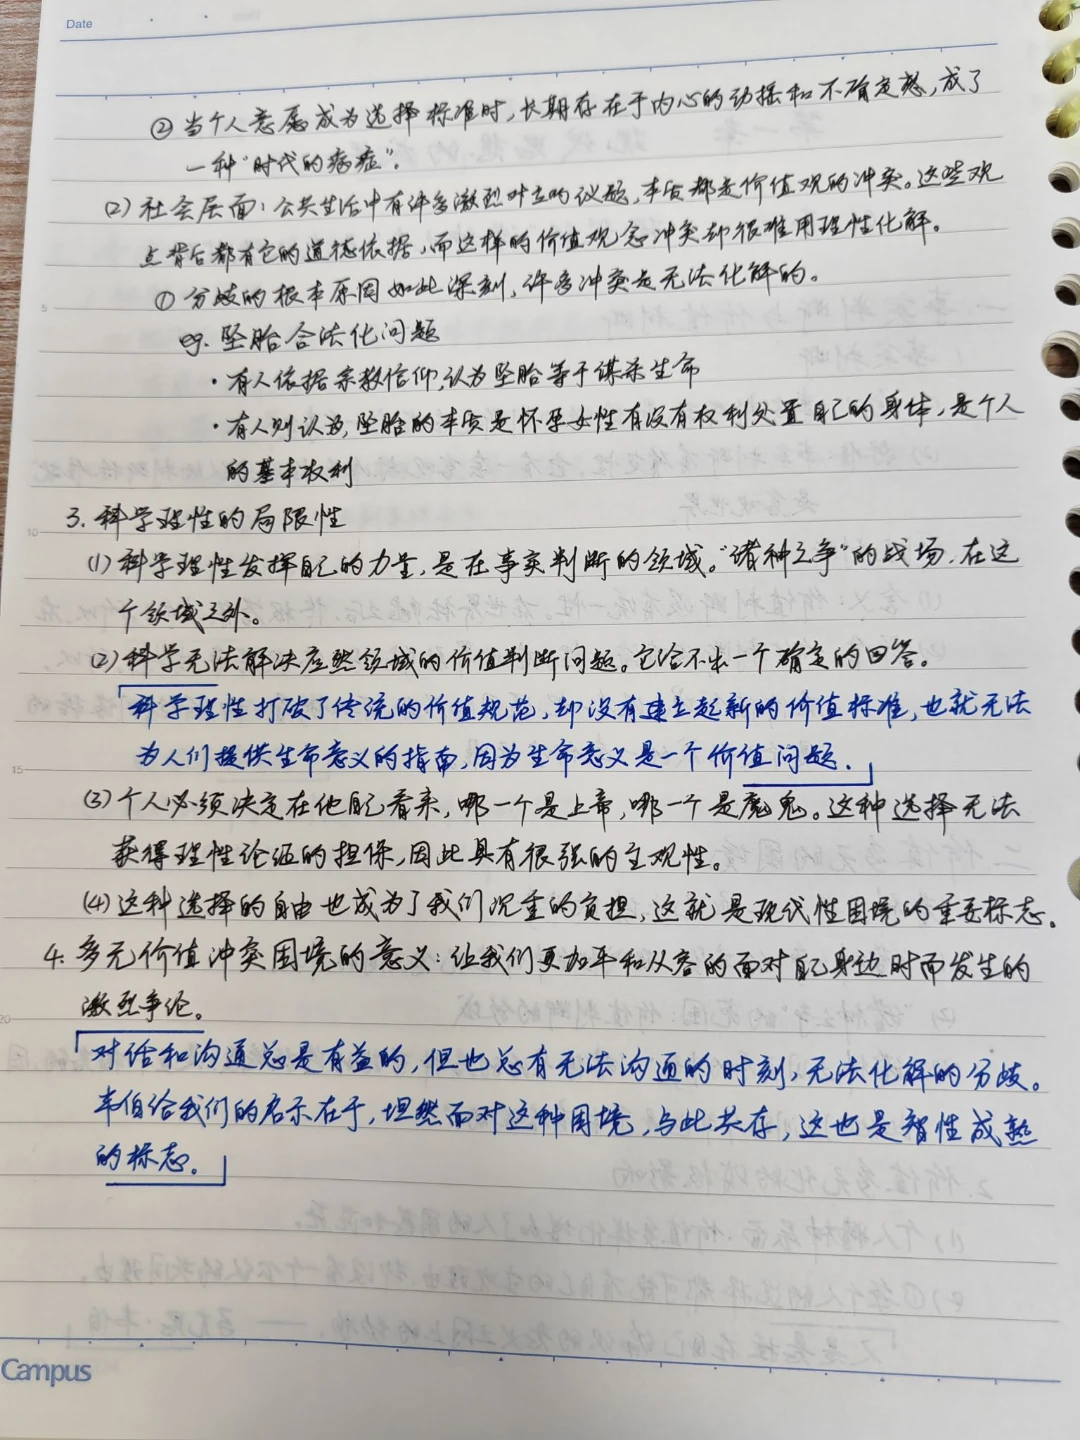 Date
② 当个人意愿成为选择标准时,长期存在于内心的动摇和不确定感,成了
一种"时代的病症"。
(2) 社会层面:公共生活中有许多激烈对立的议题,本质都是价值观的冲突。这些观
点背后都有它的道德依据,而这样的价值观念冲突却很难用理性化解。
① 分歧的根本原因如此深刻,许多冲突是无法化解的。
eg. 坠胎合法化问题
·有人依据宗教信仰,认为坠胎等于谋杀生命
·有人则认为,坠胎的本质是怀孕女性有没有权利处置自己的身体,是个人
的基本权利
3. 科学理性的局限性
(1) 科学理性发挥自己的力量,是在事实判断的领域。"诸神之争"的战场,在这
个领域之外。
(2) 科学无法解决应然领域的价值判断问题。它给不出一个确定的回答。
「科学理性打破了传统的价值规范,却没有建立起新的价值标准,也就无法
为人们提供生命意义的指南,因为生命意义是一个价值问题.」
(3) 个人必须决定在他自己看来,哪一个是上帝,哪一个是魔鬼。这种选择无法
获得理性论证的担保,因此具有很强的主观性。
(4) 这种选择的自由也成为了我们沉重的负担,这就是现代性困境的重要标志。
4. 多元价值冲突困境的意义:让我们更加平和从容的面对自己身边时而发生的
激烈争论。
「对话和沟通总是有益的,但也总有无法沟通的时刻,无法化解的分歧。
韦伯给我们的启示在于,坦然面对这种困境,与此共存,这也是智性成熟
的标志。」
5
10
15
20
Campus